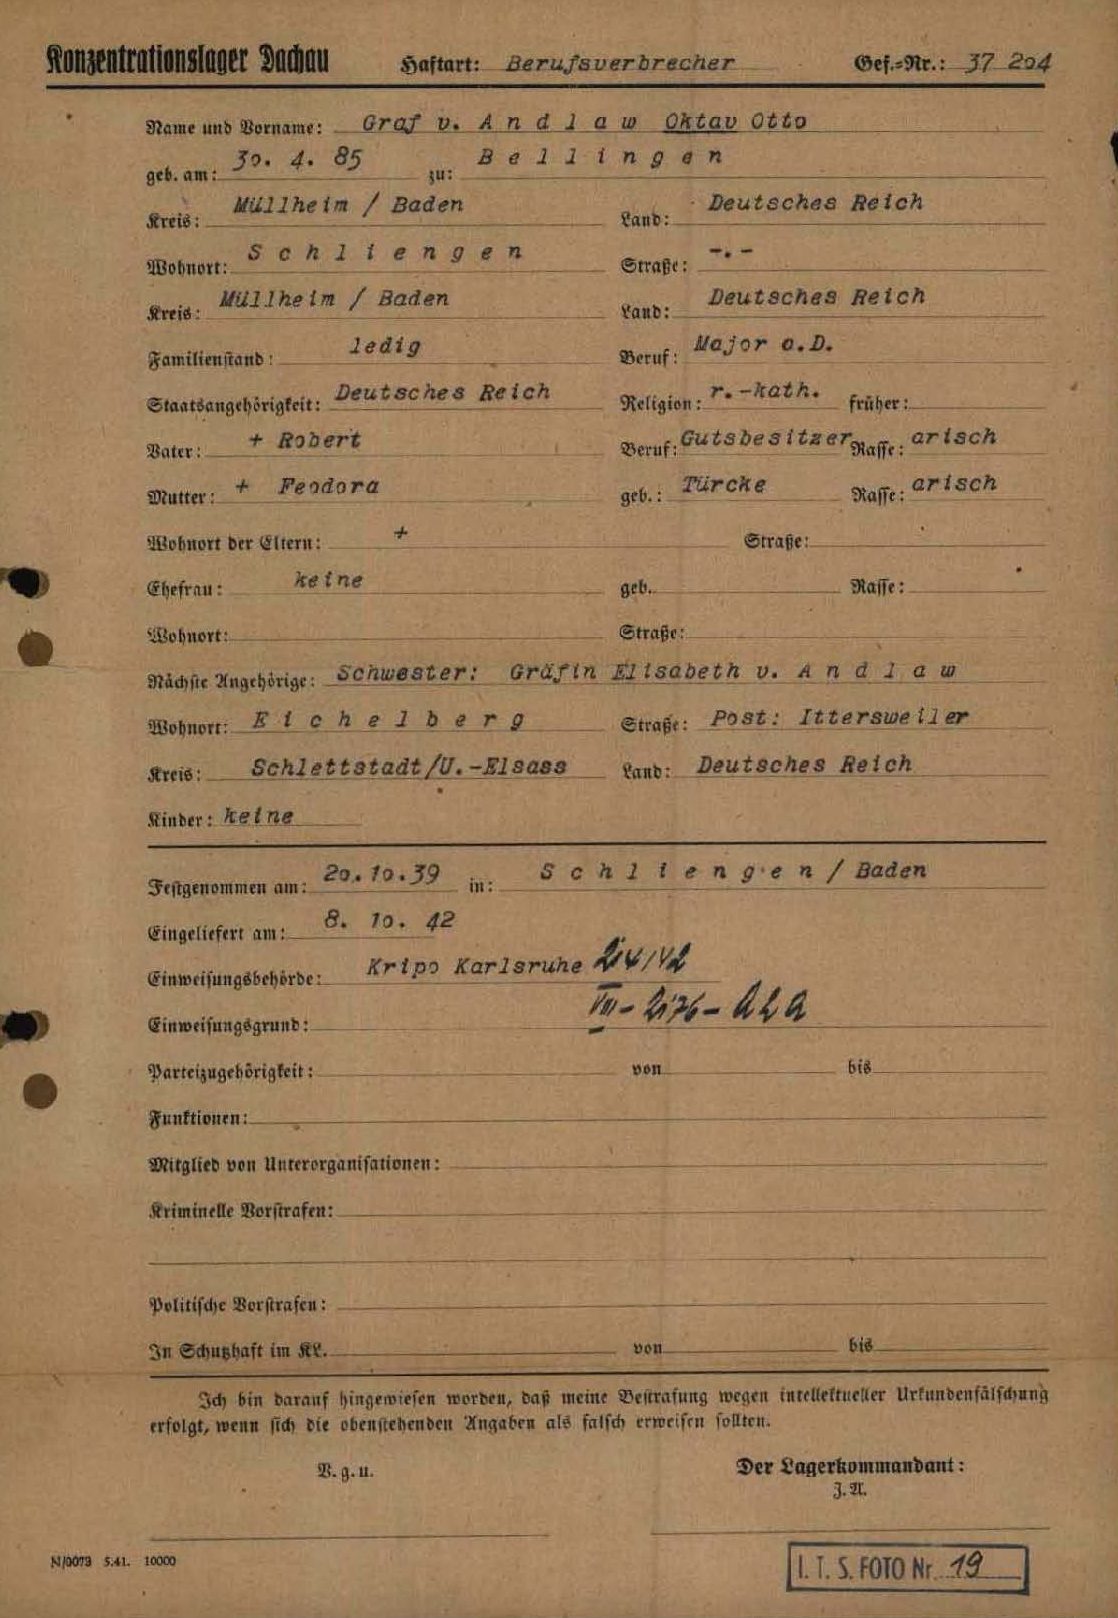 Konzentrationslager Dachau Haftart: Berufsverbrecher Gef.=Nr.: 37 204
Name und Vorname: Graf v. A n d l a w Oktav Otto
geb. am: 30. 4. 85 zu: B e l l i n g e n
Kreis: Müllheim / Baden Land: Deutsches Reich
Wohnort: S c h l i e n g e n Straße: -.-
Kreis: Müllheim / Baden Land: Deutsches Reich
Familienstand: ledig Beruf: Major a.D.
Staatsangehörigkeit: Deutsches Reich Religion: r.-kath. früher:
Vater: + Robert Beruf: Gutsbesitzer Rasse: arisch
Mutter: + Feodora geb.: Türcke Rasse: arisch
Wohnort der Eltern: + Straße:
Ehefrau: keine geb. Rasse:
Wohnort: Straße:
Nächste Angehörige: Schwester: Gräfin Elisabeth v. A n d l a w
Wohnort: E i c h e l b e r g Straße: Post: Ittersweiler
Kreis: Schlettstadt/U.-Elsass Land: Deutsches Reich
Kinder: keine
Festgenommen am: 20.10.39 in: S c h l i e n g e n / Baden
Eingeliefert am: 8. 10. 42
Einweisungsbehörde: Kripo Karlsruhe
Einweisungsgrund:
Parteizugehörigkeit: von bis
Funktionen:
Mitglied von Unterorganisationen:
Kriminelle Vorstrafen:
Politische Vorstrafen:
In Schutzhaft im KL. von bis
Ich bin darauf hingewiesen worden, daß meine Bestrafung wegen intellektueller Urkundenfälschung
erfolgt, wenn sich die obenstehenden Angaben als falsch erweisen sollten.
V. g. u. Der Lagerkommandant:
J. A.
N/0073 5.41. 10000
I. T. S. FOTO Nr. 19